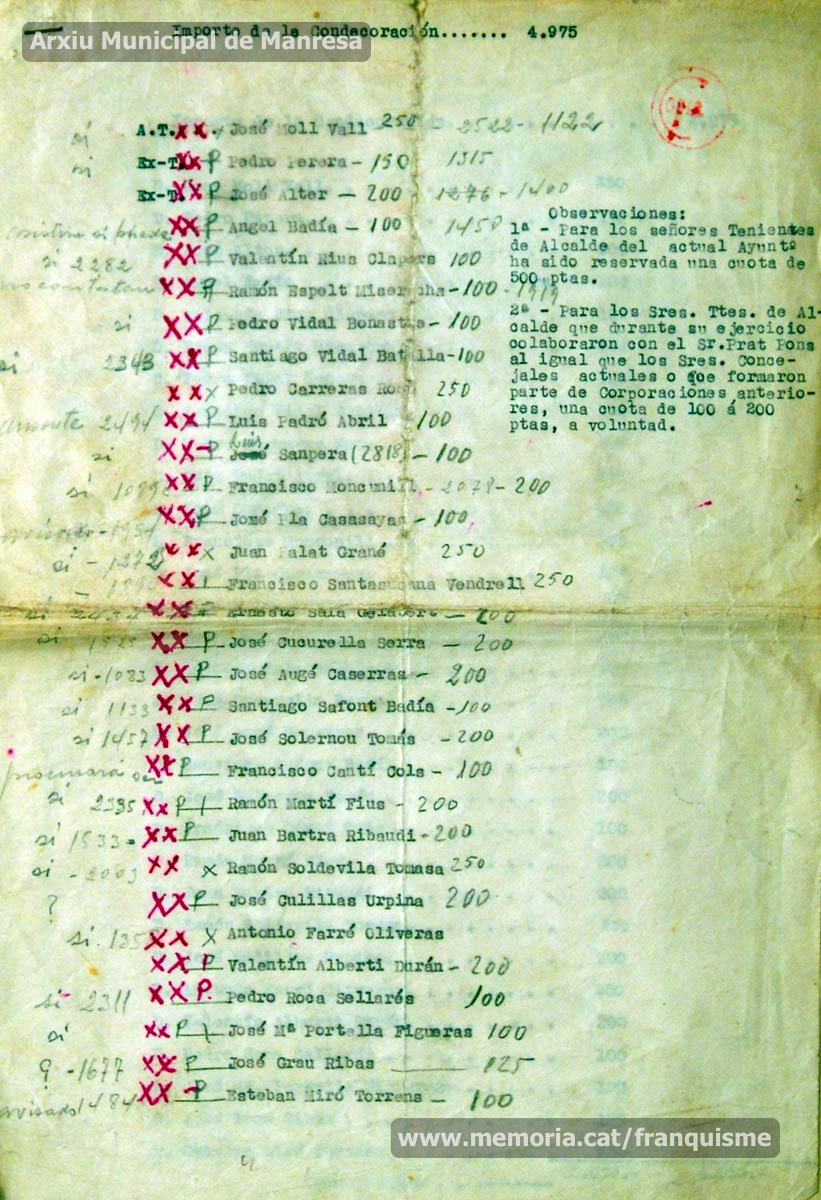 Importe de la Condecoración....... 4.975
Arxiu Municipal de Manresa
si A.T. xx x José Moll Vall 250 - 2522 - 1122
si Ex-T. xx P Pedro Perera - 150 1315
Ex-T. xx P José Alter - 200 1276 - 1400
xx P Angel Badía - 100 1450
si 2282 xx P Valentín Rius Clapers 100
xx Ramón Espelt - 100 - 1919
si xx P Pedro Vidal - 100
si 2343 xx P Santiago Vidal Batlla - 100
xx x Pedro Carreras 250
ausente 2494 xx P Luis Padró Abril - 100
si xx - P Luis José Sanpera (2818) - 100
si xx P Francisco Moncunill - 2078 - 200
xx P José Pla Casasayas - 100
si - 1272 xx x Juan Palat Grané 250
xx Francisco Santasusana Vendrell 250
si xx Ernesto Sala Gelabert - 200
si xx P José Cucurella Serra - 200
si - 1083 xx P José Augé Caserras - 200
si 1133 xx P Santiago Safont Badía - 100
si 1457 xx P José Solernou Tomás - 200
procurará xx P Francisco Cantí Cols - 100
si 2335 xx P Ramón Martí Fius - 200
si 1533 - xx P Juan Bartra Ribaudi - 200
si - 2003 xx x Ramón Soldevila Tomasa 250
? xx P José Culillas Urpina 200
si. xx x Antonio Farré Oliveras
xx P Valentín Alberti Durán - 200
si - 2311 xx P. Pedro Roca Sellarés 100
si xx P José Mª Portella Figueras 100
? - 1677 xx P José Grau Ribas 125
avisado 1484 xx - P Esteban Miró Torrens - 100
Observaciones:
1ª - Para los señores Tenientes
de Alcalde del actual Ayuntº
ha sido reservada una cuota de
500 ptas.
2ª - Para los Sres. Ttes. de Al-
calde que durante su ejercicio
colaboraron con el Sr.Prat Pons
al igual que los Sres. Conce-
jales actuales o que formaron
parte de Corporaciones anterio-
res, una cuota de 100 á 200
ptas, a voluntad.
www.memoria.cat/franquisme